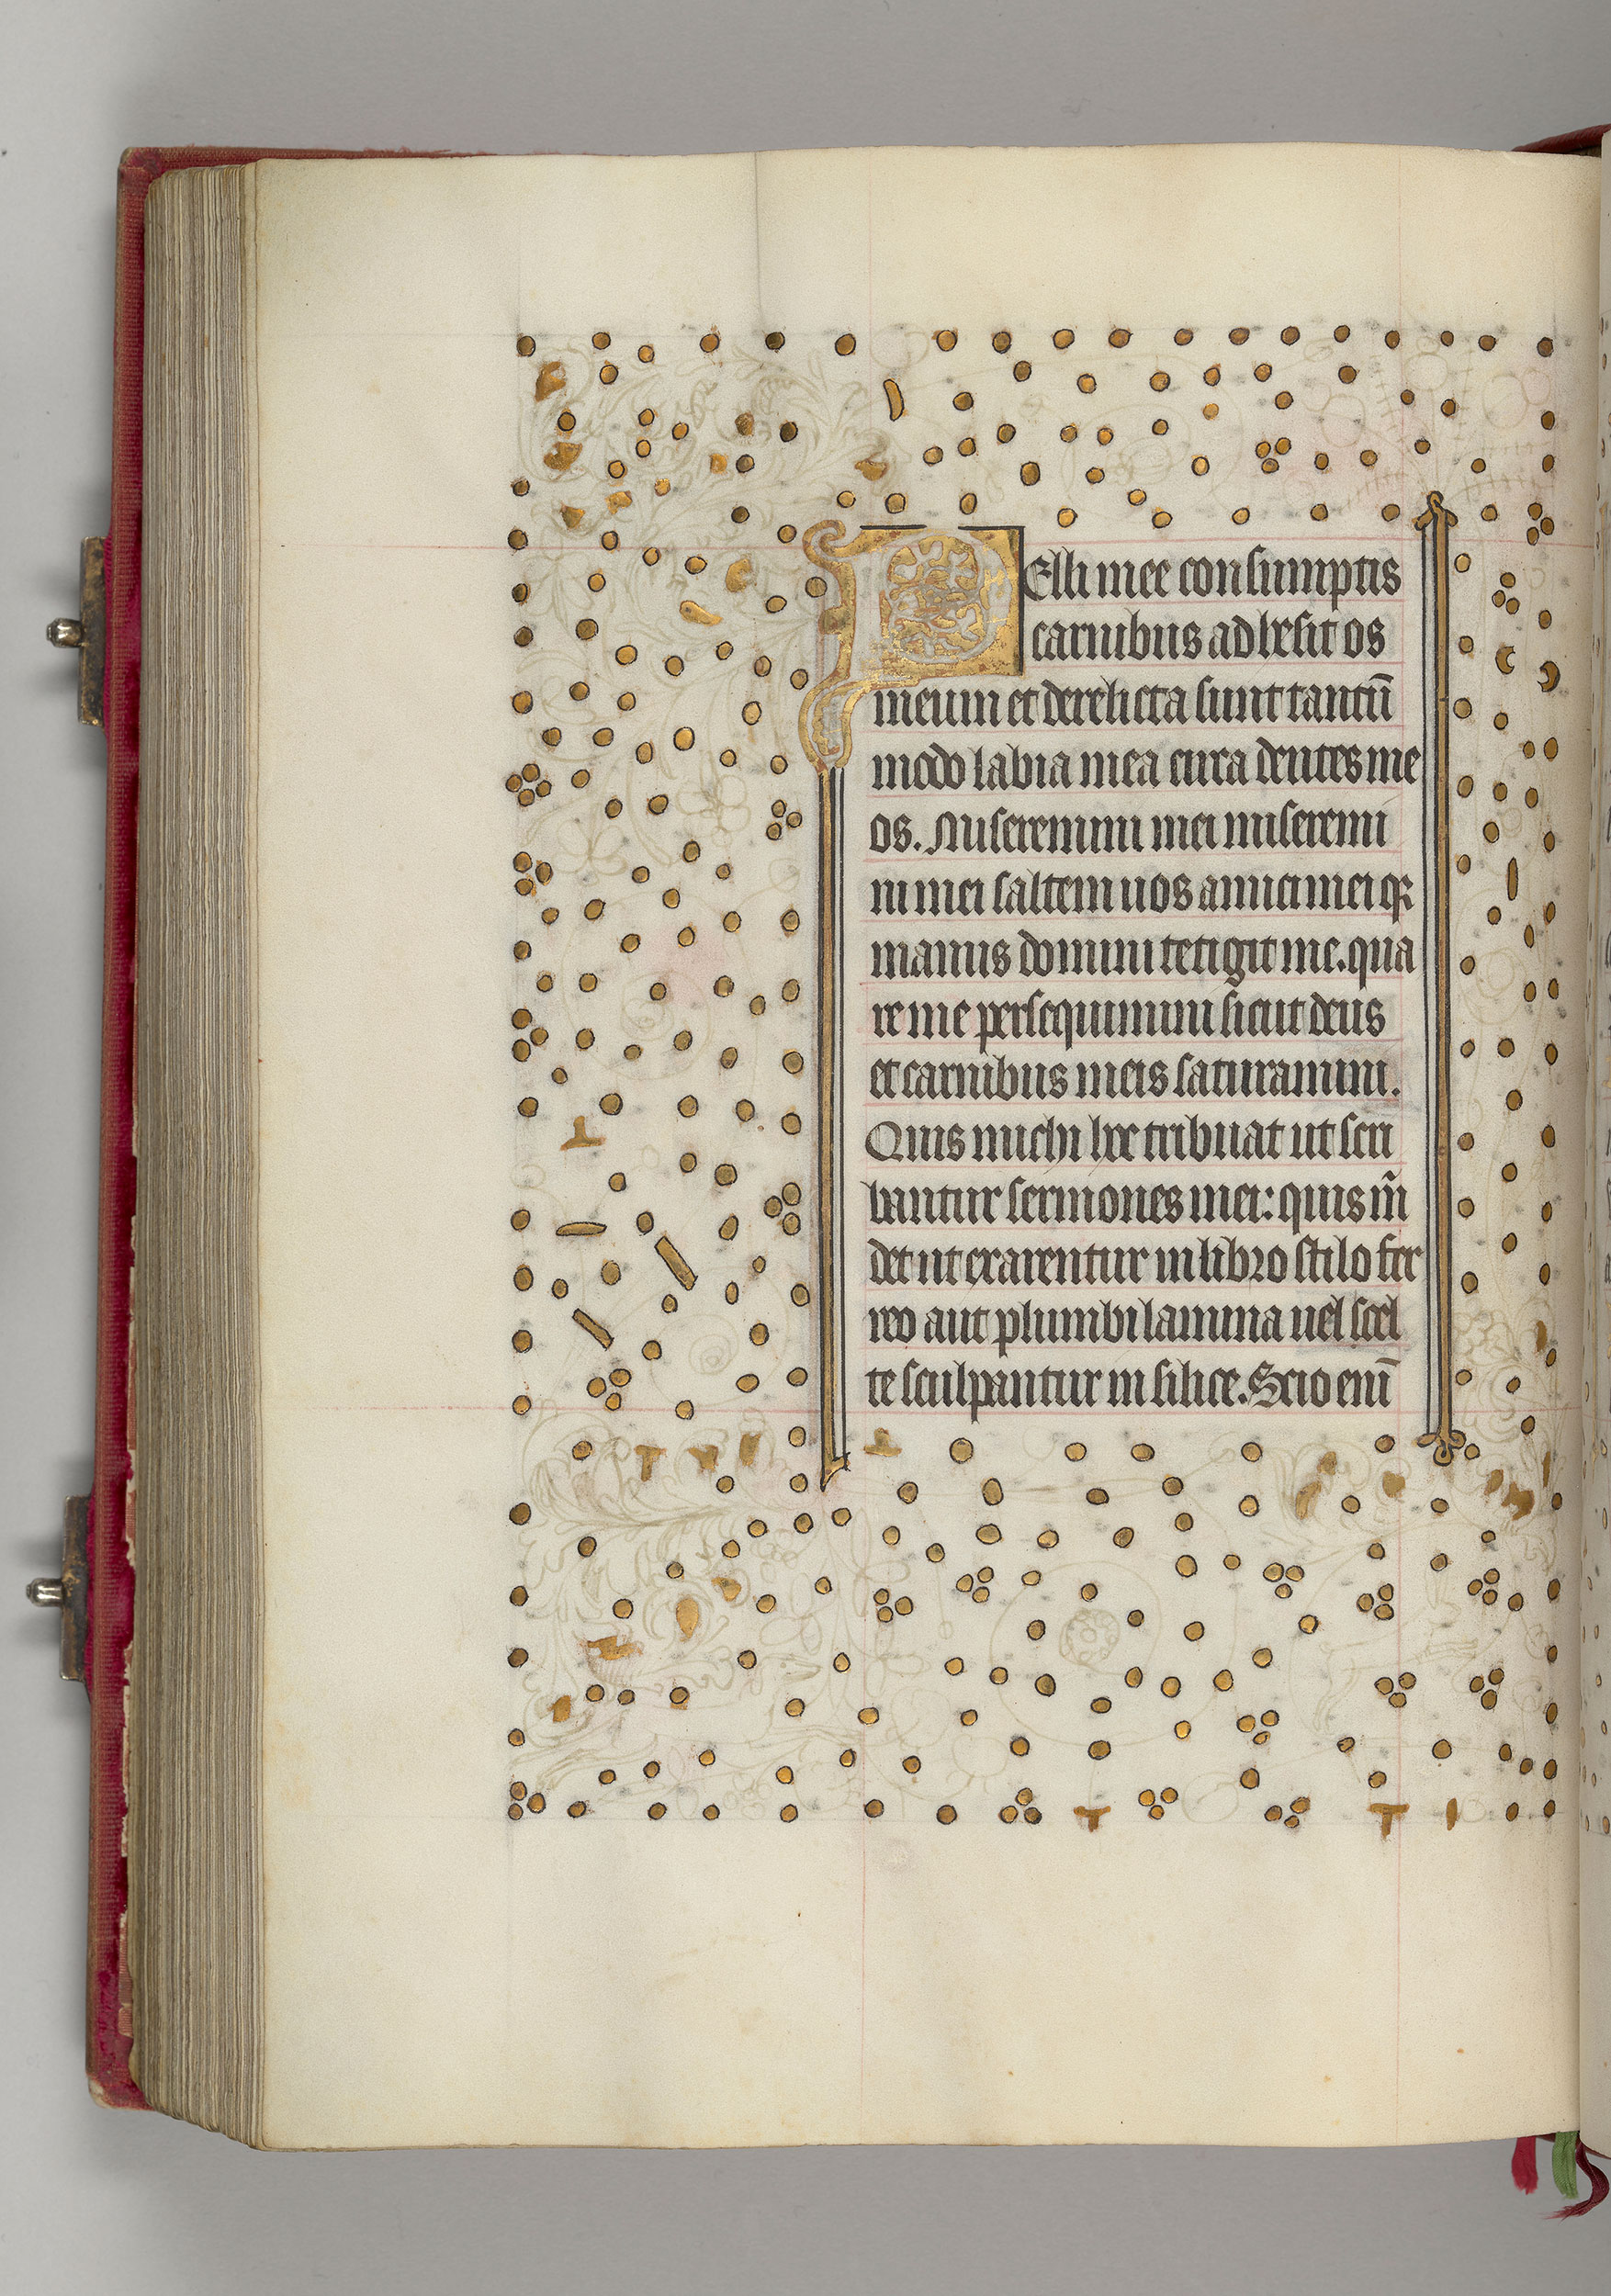 PElli mee consumptis
carnibus adhesit os
meum et derelicta sunt tantū
modo labia mea circa dentes me
os. Miseremini mei miseremi
ni mei saltem uos amici mei qꝛ
manus domini tetigit me. qua
re me persequimini sicut deus
et carnibus meis saturamini.
Quis michi hoc tribuat ut scri
bantur sermones mei: quis m̄
det ut exarentur in libro stilo fer
reo aut plumbi lamina uel scel
te sculpantur in silice. Scio enī